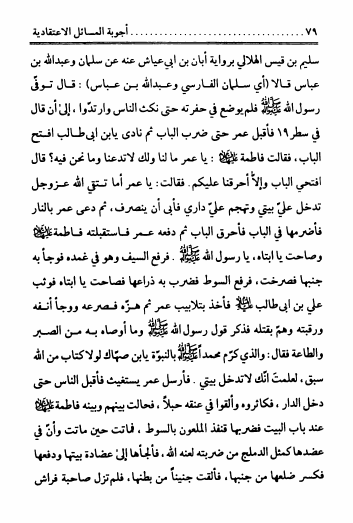 ٧٩ ........................................ أجوبة المسائل الاعتقادية
سليم بن قيس الهلالي برواية أبان بن ابي عياش عنه عن سلمان وعبدالله بن
عباس قالا (أي سلمان الفارسي وعبدالله بن عباس) : قال توفّى
رسول الله ﷺ فلم يوضع في حفرته حتى نكث الناس وارتدوا ، إلى أن قال
في سطر ١٩ فأقبل عمر حتى ضرب الباب ثم نادى يابن ابي طالب افتح
الباب، فقالت فاطمة : يا عمر ما لنا ولك لاتدعنا وما نحن فيه؟ قال
افتحي الباب وإلاّ أحرقنا عليكم. فقالت: يا عمر أما تتقي الله عزوجل
تدخل عليّ بيتي وتهجم عليّ داري فأبى أن ينصرف، ثم دعى عمر بالنار
فأضرمها في الباب فأحرق الباب ثم دفعه عمر فاستقبلته فاطمة
وصاحت يا ابتاه، يا رسول الله ﷺ . فرفع السيف وهو في غمده فوجأ به
جنبها فصرخت، فرفع السوط فضرب به ذراعها فصاحت يا ابتاه فوثب
علي بن ابي طالب فأخذ بتلابيب عمر ثم هزّه فصرعه ووجأ أنفه
ورقبته وهمّ بقتله فذكر قول رسول الله ﷺ وما أوصاه به من الصبر
والطاعة فقال: والذي كرّم محمداً ﷺ بالنبوة يابن صهّاك لولا كتاب من الله
سبق، لعلمت انّك لاتدخل بيتي . فأرسل عمر يستغيث فأقبل الناس حتى
دخل الدار ، فكاثروه وألقوا في عنقه حبلاً ، فحالت بينهم وبينه فاطمة
عند باب البيت فضربها قنفذ الملعون بالسوط ، فماتت حين ماتت وأنّ في
عضدها كمثل الدملج من ضربته لعنه الله ، فألجأها إلى عضادة بيتها ودفعها
فكسر ضلعها من جنبها ، فألقت جنيناً من بطنها، فلم تزل صاحبة فراش